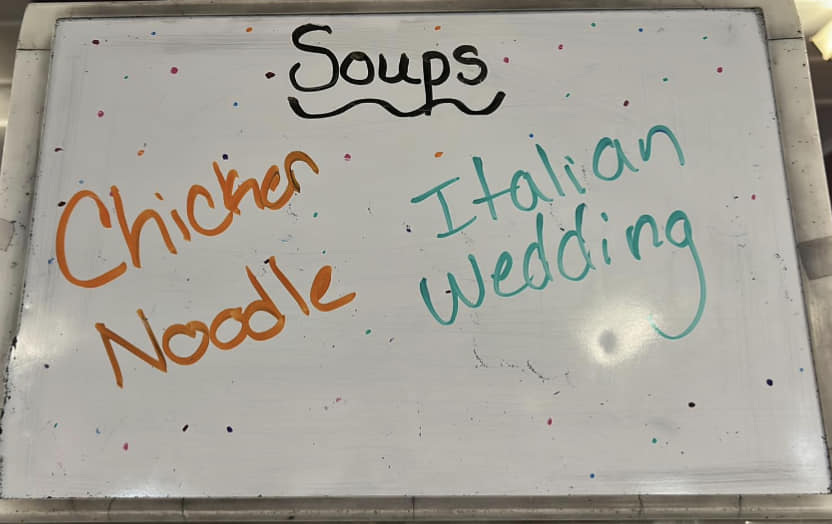 Soups
Chicken
Noodle
Italian
Wedding